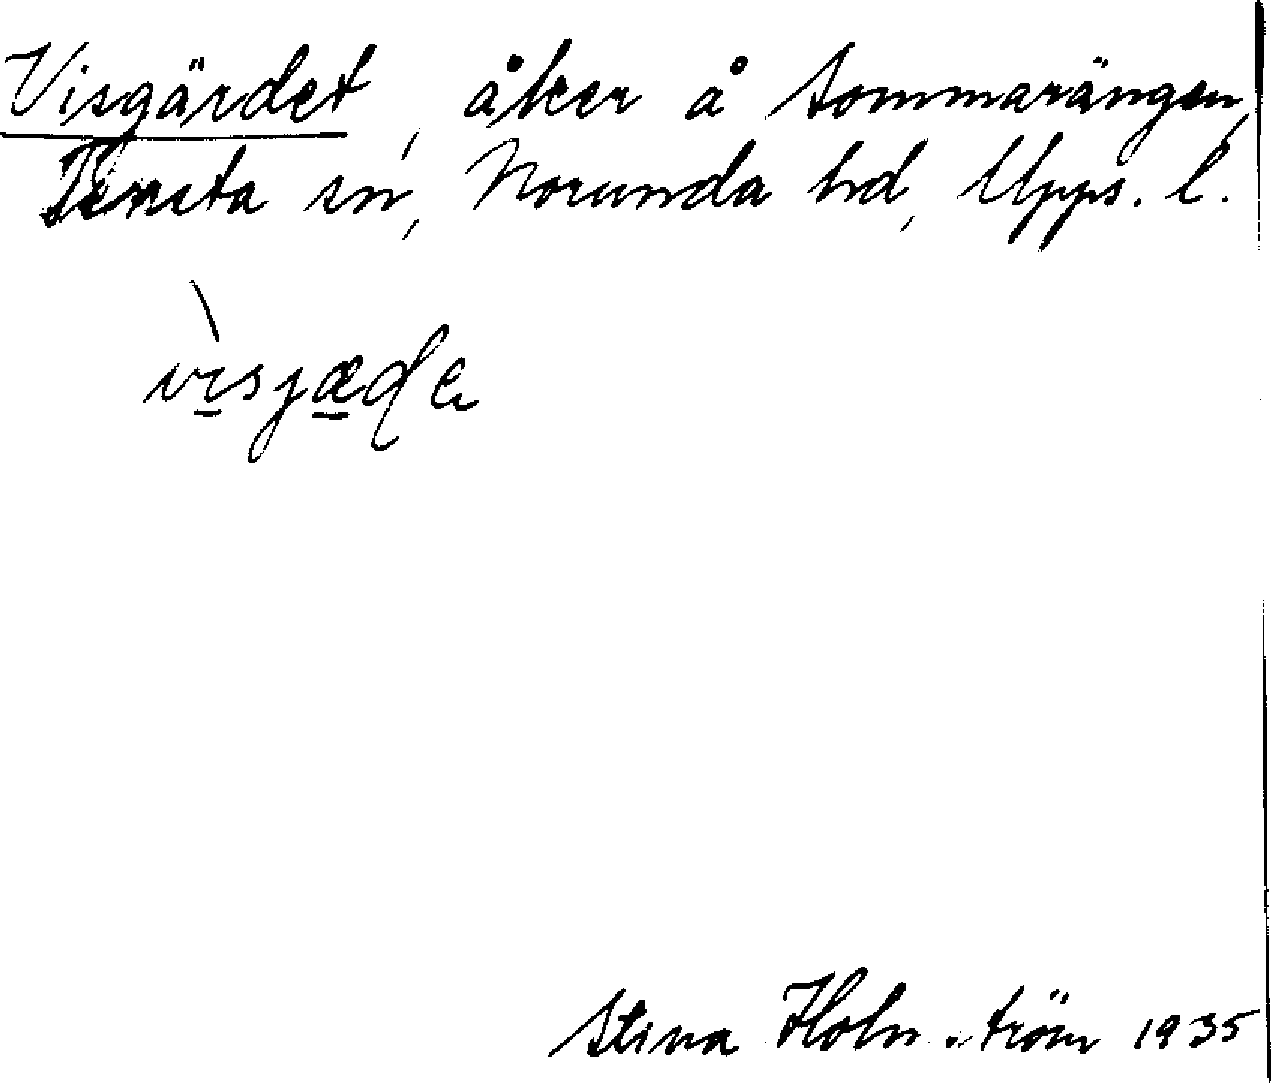 Visgärdet, åker å Sommarängen,
Tensta sn, Norunda hd, Upps. l.
vìsjæde
Stina Holmström 1935